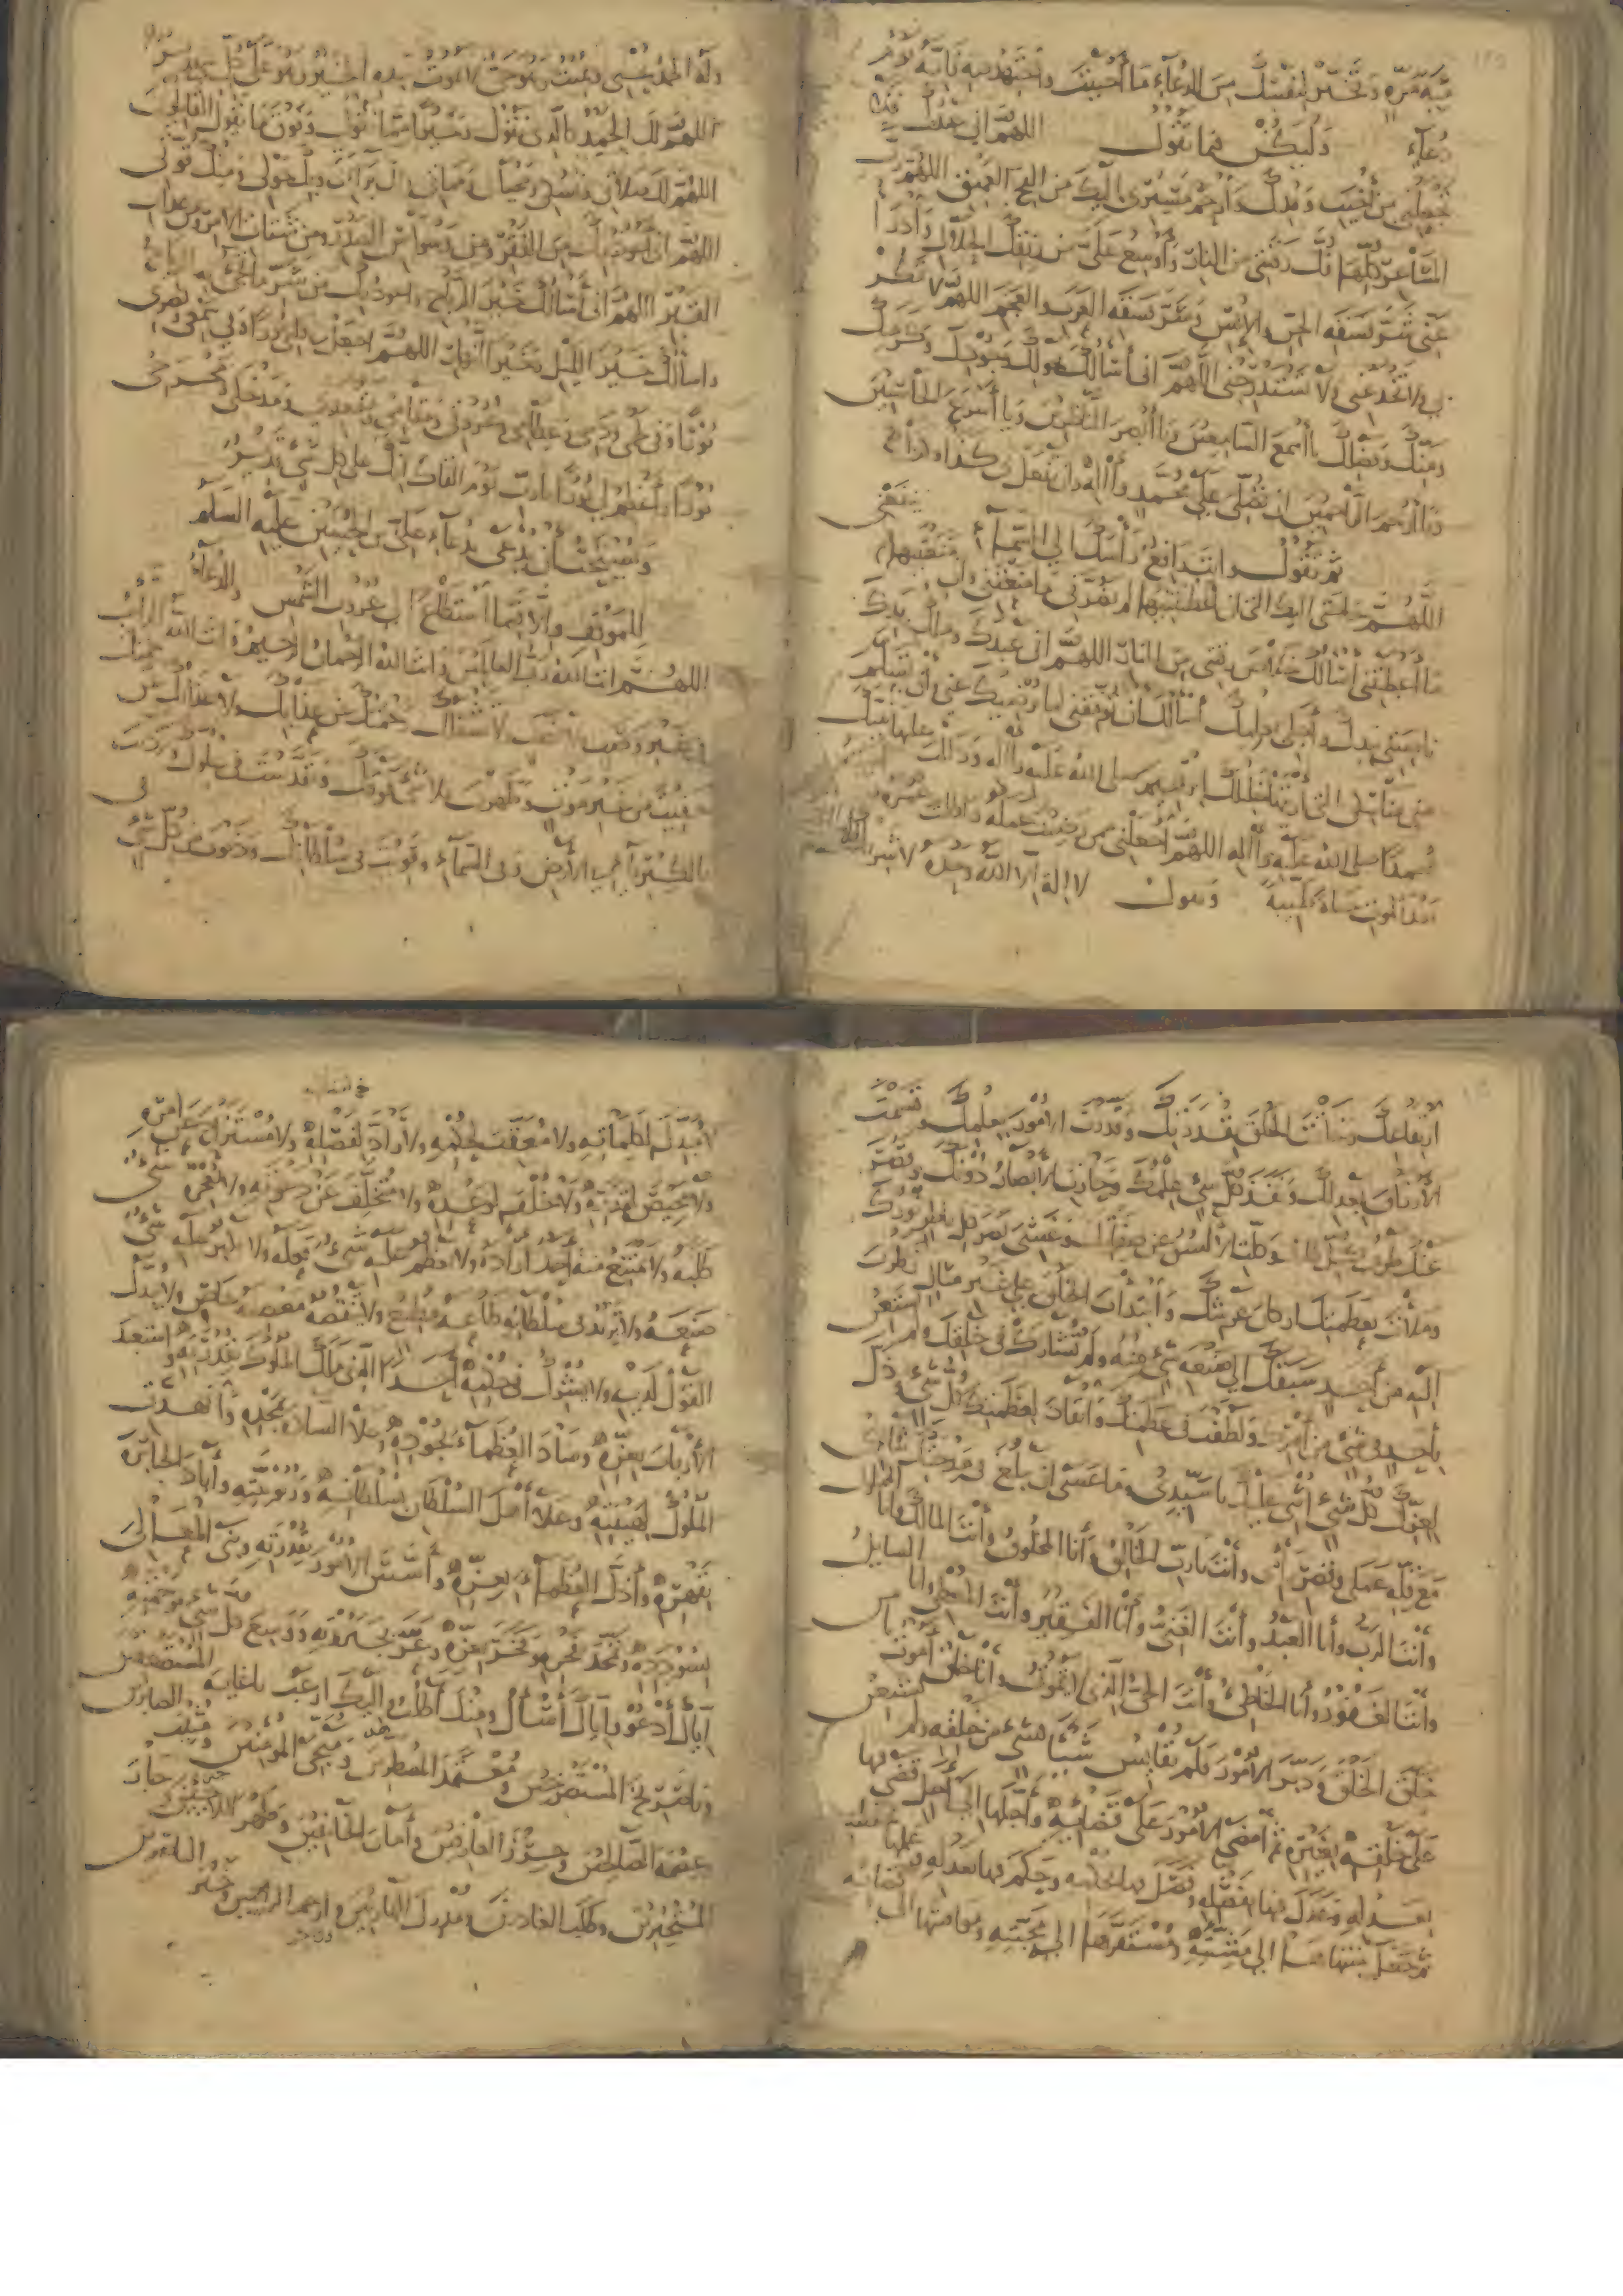 مئة مرة وتخير لنفسك من الدعاء ما أحببت واجتهد فيه فإنه يوم
دعاء وليكن فيما تقول اللهم إني عبدك فلا
تجعلني من أخيب وفدك وارحم مسيري إليك من الفج العميق اللهم رب
المشاعر كلها فك رقبتي من النار وأوسع علي من رزقك الحلال وادرأ
عني شر فسقة الجن والإنس وشر فسقة العرب والعجم اللهم لا تمكر
بي ولا تخدعني ولا تستدرجني اللهم إني أسألك بحولك وجودك وكرمك
ومنك وفضلك يا أسمع السامعين ويا أبصر الناظرين ويا أسرع الحاسبين
ويا أرحم الراحمين أن تصلي على محمد وآله وأن تفعل بي كذا وكذا
ثم تقول وأنت رافع رأسك إلى السماء
اللهم حاجتي إليك التي إن أعطيتنيها لم يضرني ما منعتني وإن منعتنيها لم ينفعني
ما أعطيتني أسألك خلاص رقبتي من النار اللهم إني عبدك وملك يدك
ناصيتي بيدك وأجلي بعلمك أسألك أن توفقني لما يرضيك عني وأن تسلم
مني مناسكي التي أريتها خليلك إبراهيم صلى الله عليه وآله ودللت عليها نبيك
محمدا صلى الله عليه وآله اللهم اجعلني ممن رضيت عمله وأطلت عمره
بعد الموت حياة طيبة وتقول لا إله إلا الله وحده لا شريك له
وله الحمد يحيي ويميت وهو حي لا يموت بيده الخير وهو على كل شيء قدير
اللهم لك الحمد كالذي تقول وخيرا مما نقول وفوق ما يقول القائلون
اللهم لك صلاتي ونسكي ومحياي ومماتي ولك براءتي وبك حولي ومنك قوتي
اللهم إني أعوذ بك من الفقر ومن وسواس الصدر ومن شتات الأمر ومن عذاب
القبر اللهم إني أسألك خير الرياح وأعوذ بك من شر ما تجيء به الرياح
وأسألك خير الليل وخير النهار اللهم اجعل في قلبي نورا وفي سمعي وبصري
نورا وفي لحمي ودمي وعظامي وعروقي ومقامي ومقعدي ومدخلي ومخرجي
نورا وأعظم لي نورا يا رب يوم ألقاك إنك على كل شيء قدير
ويستحب أن يدعى بدعاء علي بن الحسين عليه السلام
للموقف وإلا فما استطاع إلى غروب الشمس والدعاء
اللهم أنت الله رب العالمين وأنت الله الرحمن الرحيم وأنت الله الدائب
في غير وصب ولا نصب ولا تشغلك رحمتك عن عذابك ولا عذابك عن رحمتك
خفيت من غير موت وظهرت فلا شيء فوقك وتقدست في علوك وترديت
بالكبرياء في الأرض وفي السماء وقويت في سلطانك ودنوت من كل شيء في
ارتفاعك وخلقت الخلق بقدرتك وقدرت الأمور بعلمك وقسمت
الأرزاق بعدلك ونفذ كل شيء علمك وحارت الأبصار دونك وقصر
عنك طرف كل طارف وكلت الألسن عن صفاتك وغشي بصر كل ناظر نورك
وملأت بعظمتك أركان عرشك وابتدأت الخلق على غير مثال نظرت
إليه من أحد سبقك إلى صنعة شيء منه ولم تشارك في خلقك ولم تستعن
بأحد في شيء من أمرك ولطفت في عظمتك وانقاد لعظمتك كل شيء وذل
لعزك كل شيء أثني عليك يا سيدي وما عسى أن يبلغ في مدحتك ثنائي
مع قلة عملي وقصر رأيي وأنت يا رب الخالق وأنا المخلوق وأنت المالك وأنا المملوك
وأنت الرب وأنا العبد وأنت الغني وأنا الفقير وأنت المعطي وأنا السائل
وأنت الغفور وأنا الخاطئ وأنت الحي الذي لا يموت وأنا خلق أموت يا من
خلق الخلق ودبر الأمور فلم يقايس شيئا بشيء من خلقه ولم يستعن
على خلقه بغيره ثم أمضى الأمور على قضائه وأجلها إلى أجل قضى فيها
بعدله وعدل فيها بفضله وفصل فيها بحكمه وحكم فيها بعدله وعلمها
ثم جعل منتهاها إلى مشيته ومستقرها إلى محبته ومواقيتها إلى قضائه
لا مبدل لكلماته ولا معقب لحكمه ولا راد لفضله ولا مستزاح عن أمره
ولا محيص لقدره ولا خلف لوعده ولا متخلف عن دعوته ولا يعجزه شيء
طلبه ولا يمتنع منه أحد أراده ولا يعظم عليه شيء فعله ولا يكبر عليه شيء
صنعه ولا يزيد في سلطانه طاعة مطيع ولا ينقصه معصية عاص ولا يبدل
القول لديه ولا يشرك في حكمه أحدا الذي ملك الملوك بقدرته واستعبد
الأرباب بعزه وساد العظماء بجوده وعلا السادة بمجده وانهدت
الملوك لهيبته وعلا أهل السلطان بسلطانه وربوبيته وأباد الجبابرة
بقهره وأذل العظماء بعزه وأسس الأمور بقدرته وبنى المعالي
بسودده وتمجد بفخره وفخر بعزه وعز بجبروته ووسع كل شيء برحمته
إياك أدعو وإياك أسأل ومنك أطلب وإليك أرغب يا غاية المستضعفين
ويا صريخ المستصرخين ومعتمد المضطهدين ومنجي المؤمنين ومثيب الصابرين
وعصمة الصالحين وحرز العارفين وأمان الخائفين وظهر اللاجين وجار
المستجيرين وطالب الغادرين ومدرك الهاربين وأرحم الراحمين وخير الناصرين